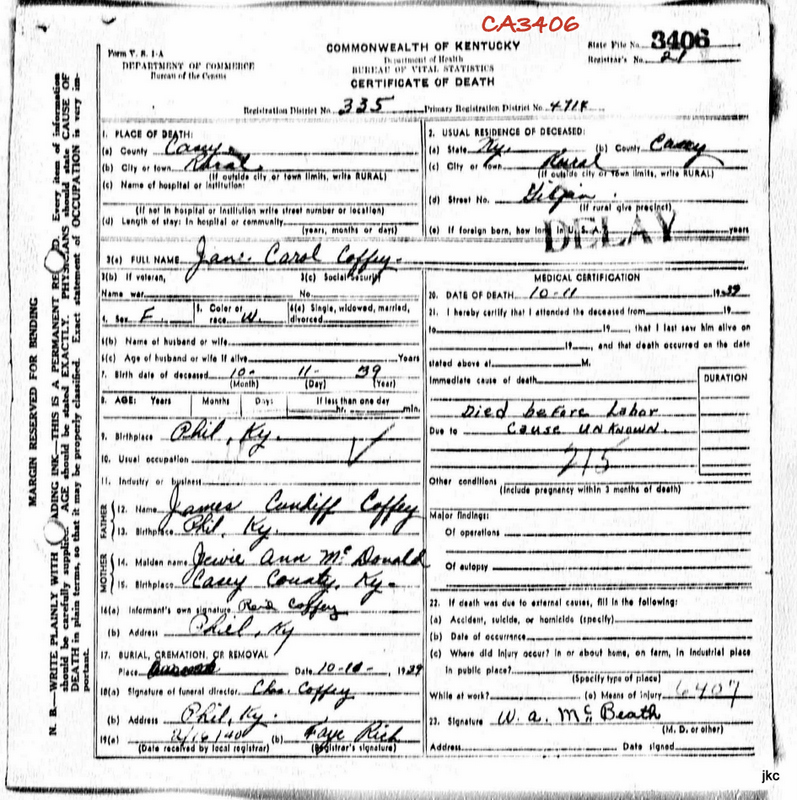 CA3406
Form V. S. 1-A
DEPARTMENT OF COMMERCE
Bureau of the Census
COMMONWEALTH OF KENTUCKY
Department of Health
BUREAU OF VITAL STATISTICS
CERTIFICATE OF DEATH
State File No. 3406
Registrar's No. 21
Registration District No. 335 Primary Registration District No. 471K
MARGIN RESERVED FOR BINDING
N. B.—WRITE PLAINLY WITH ADING INK—THIS IS A PERMANENT RE D. Every item of information
should be carefully supplied. AGE should be stated EXACTLY. PHYSICIANS should state CAUSE OF
DEATH in plain terms, so that it may be properly classified. Exact statement of OCCUPATION is very im-
portant.
1. PLACE OF DEATH:
(a) County Casey
(b) City or town Rural
(If outside city or town limits, write RURAL)
(c) Name of hospital or institution:
(If not in hospital or institution write street number or location)
(d) Length of stay: In hospital or community
(years, months or days)
2. USUAL RESIDENCE OF DECEASED:
(a) State Ky. (b) County Casey
(c) City or town Rural
(If outside city or town limits, write RURAL)
(d) Street No. Gilpin
(If rural give precinct)
(e) If foreign born, how long in U. S. A.? years
DELAY
3(a) FULL NAME Jane Carol Coffey
3(b) If veteran, 3(c) Social Security
Name war No.
4. Sex F. 5. Color or race W. 6(a) Single, widowed, married, divorced
6(b) Name of husband or wife
6(c) Age of husband or wife if alive Years
7. Birth date of deceased 10- 11- 39
(Month) (Day) (Year)
8. AGE: Years Months Days If less than one day
hr. min.
9. Birthplace Phil, Ky.
10. Usual occupation
11. Industry or business
FATHER
12. Name James Cundiff Coffey
13. Birthplace Phil, Ky
MOTHER
14. Maiden name Jewie Ann McDonald
15. Birthplace Casey County, Ky.
16(a) Informant's own signature Coffey
(b) Address Phil, Ky
17. BURIAL, CREMATION, OR REMOVAL
Place Date 10-11-, 1939
18(a) Signature of funeral director Chas. Coffey
(b) Address Phil, Ky.
19(a) 2/16/40 (b) Faye Rich
(Date received by local registrar) (Registrar's signature)
MEDICAL CERTIFICATION
20. DATE OF DEATH 10-11 1939
21. I hereby certify that I attended the deceased from 19
to 19, that I last saw him alive on
19, and that death occurred on the date
stated above at M.
Immediate cause of death DURATION
Died before Labor
Due to Cause UnKnown.
215
Other conditions
(Include pregnancy within 3 months of death)
Major findings:
Of operations
Of autopsy
22. If death was due to external causes, fill in the following:
(a) Accident, suicide, or homicide (specify)
(b) Date of occurrence
(c) Where did injury occur? in or about home, on farm, in industrial place
in public place?
(Specify type of place)
While at work? (e) Means of injury 6407
23. Signature W. a. McBeath
(M. D. or other)
Address Date signed
jkc